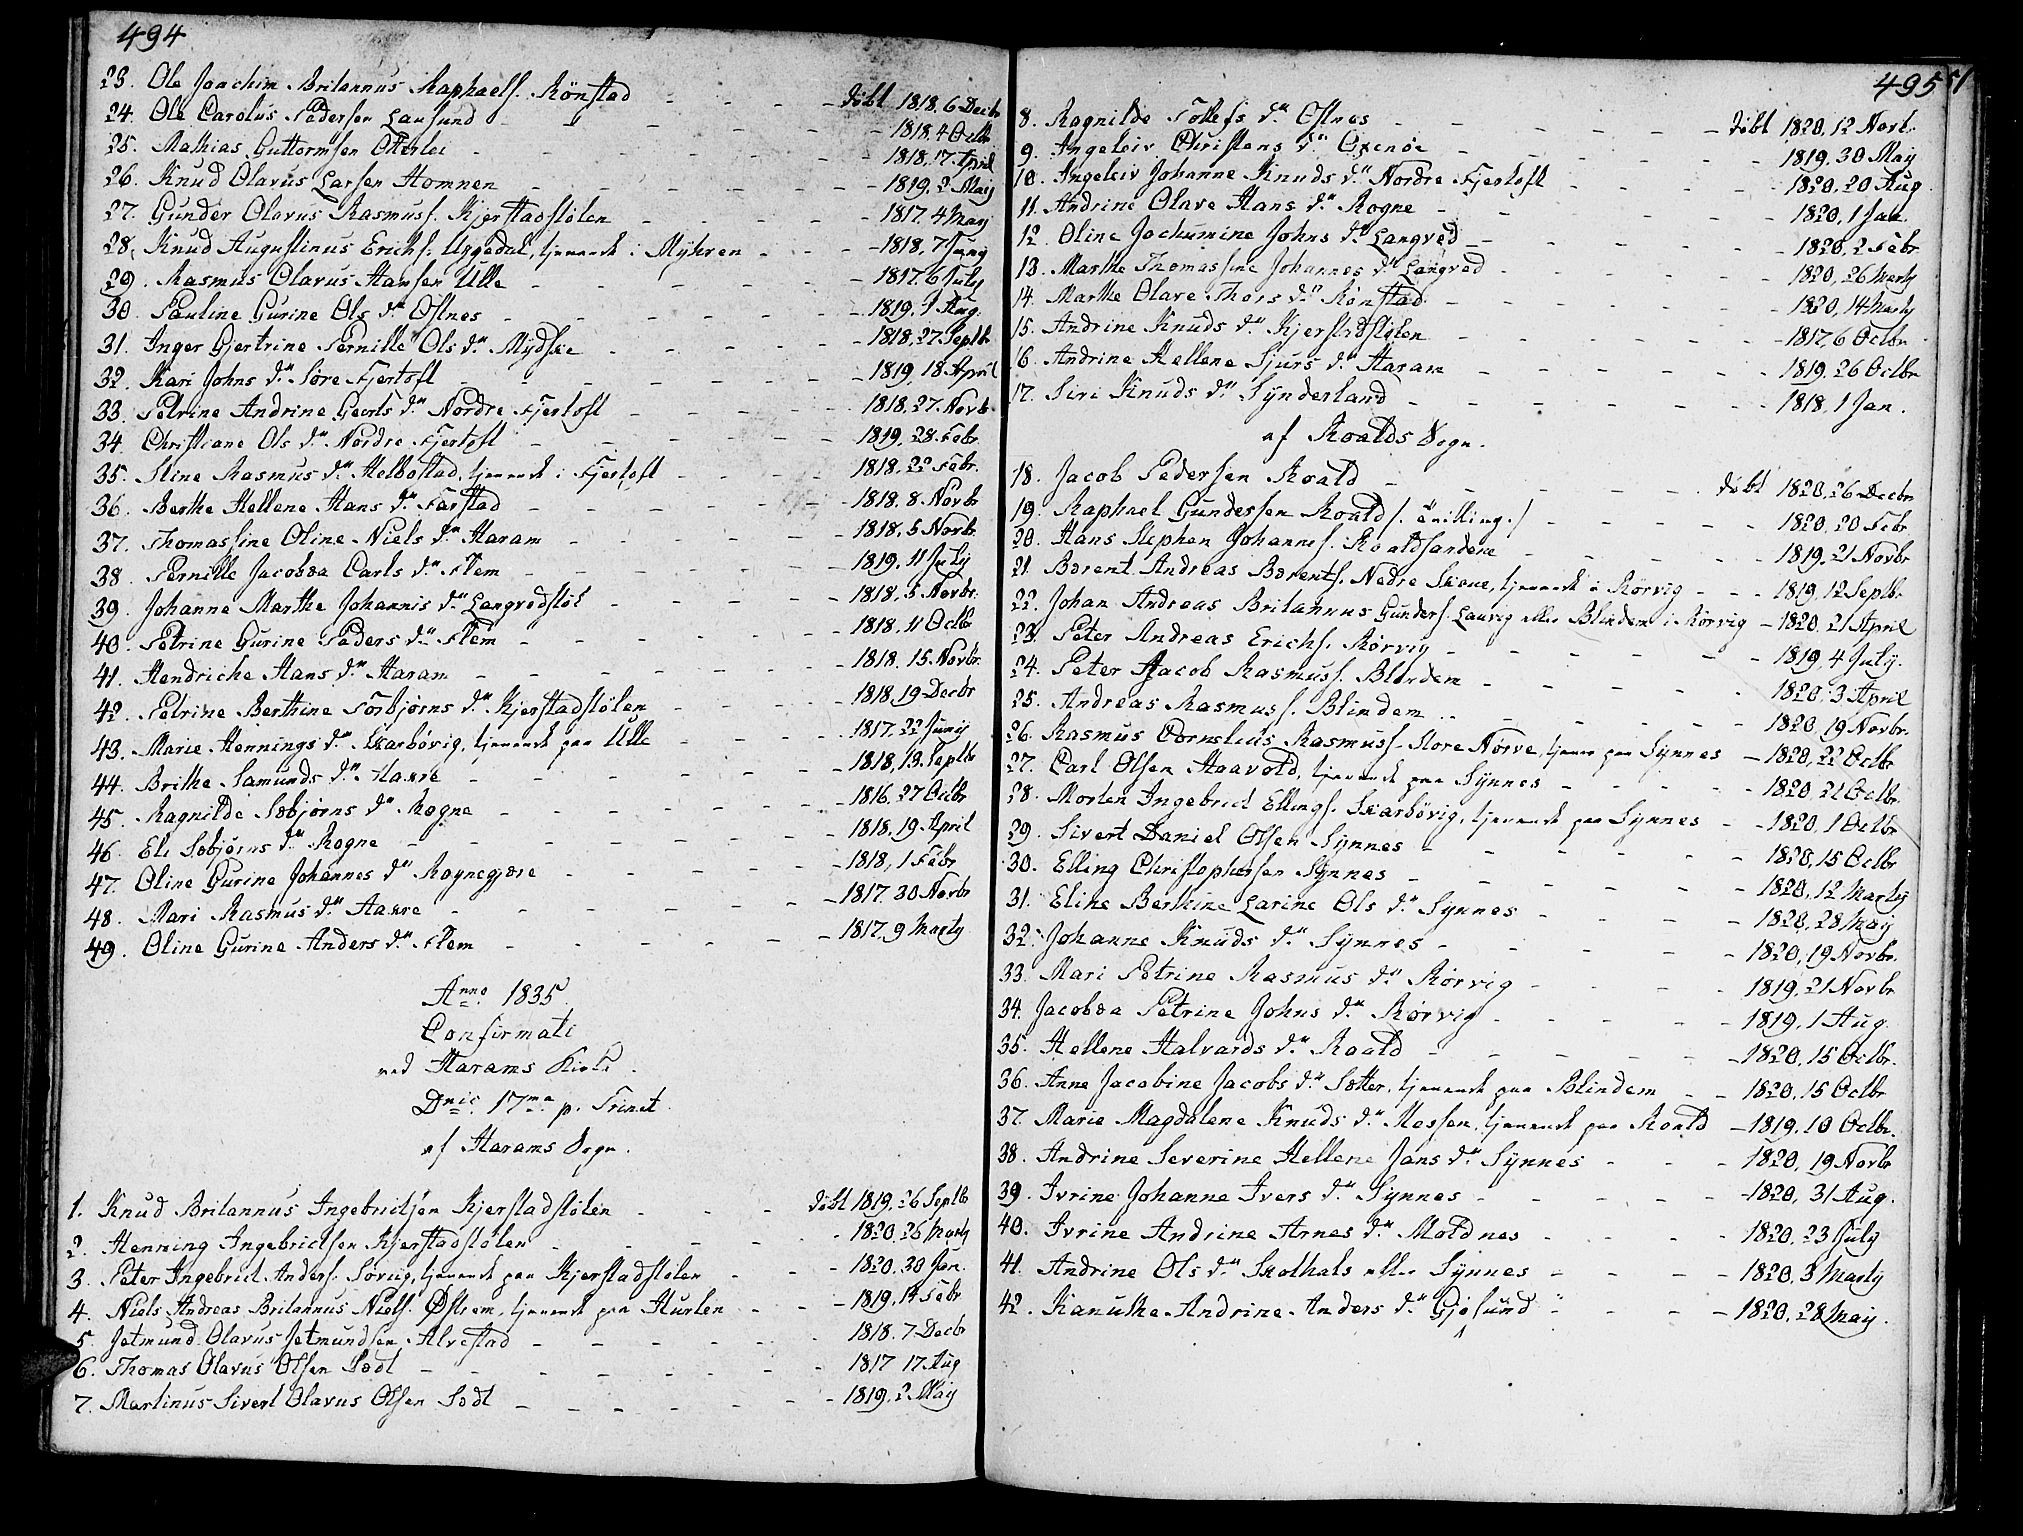 494
23. Ole Joachim Britannus Raphaels. Rönstad - - - - döbt 1818. 6 Decbr
24. Ole Carolus Pedersen Lausund - - - - - 1818. 4 Octbr
25. Mathias Guttormsen Otterlei - - - - - 1818, 17. April
26. Knud Olavus Larsen Homnen - - - - - 1819. 2 Maij
27. Gunder Olavus Rasmuss. Kjerstadstölen - - - - 1817. 4 Maij
28. Knud Augustinus Erichs. Uggedal, tjenende i Myhren - - - 1818, 7 Junij
29. Rasmus Olavus Hansen Ulle - - - - - 1817. 6 July
30. Pauline Gurine Ols dr. Ostnes - - - - - 1819. 1 Aug.
31. Inger Gjertrine Pernille Ols dr. Mydske - - - - 1818, 27 Septb.
32. Kari Johns dr. Söre Fjertoft - - - - - 1819, 18 April
33. Petrine Andrine Georts dr. Nordre Fjertoft - - - - 1818. 27. Novb.
34. Christiane Ols dr. Nordre Fjertoft - - - - - 1819. 28. Febr.
35. Stine Rasmus dr. Helbostad, tjenende i Fjertoft - - - - 1818. 22 Febr.
36. Berthe Hellene Hans dr. Farstad - - - - - 1818. 8. Novbr
37. Thomassine Oline Niels dr. Haram - - - - - 1818. 5 Novb.
38. Pernille Jacobæa Carls dr. Flem - - - - - 1819. 11 July
39. Johanne Marthe Johannis dr. Langvedstöl - - - - 1818. 5 Novbr.
40. Petrine Gurine Peders dr. Flem - - - - - 1818. 11 Octbr
41. Hendriche Hans dr. Haram - - - - - 1818. 15 Novbr.
42. Petrine Berthine Torbjørns dr. Kjerstadstölen - - - - 1818. 19 Decbr
43. Marie Hennings dr. Skarbövig, tjenende paa Ulle - - - 1817. 22 Junij
44. Brithe Samunds dr. Haxre - - - - - 1818, 13. Septbr
45. Ragnilde Sæbjörns dr. Rogne - - - - - 1816. 27 Octbr
46. Eli Sæbjörns dr. Rogne - - - - - 1818, 19. April
47. Oline Gurine Johannes dr. Rognegjære - - - - 1818, 1 Febr
48. Mari Rasmus dr. Haxre - - - - - 1817. 30 Novbr
49. Oline Gurine Anders dr. Flem - - - - - 1817. 9 Marty
Anno 1835
Confirmati
ved Harams Kirke.
Dnic. 17ma p. Trinit.
af Harams Sogn.
1. Knud Britannus Ingebrictsen Kjerstadstölen - - - döbt 1819. 26 Septb
2. Henning Ingebrictsen Kjerstadstölen - - - - 1820. 26 Marty
3. Peter Ingebrict Anders. Sörvig, tjenende paa Kjerstadstölen - - - 1820. 30 Jan.
4. Niels Andreas Britannus Niels. Östrem, tjenende paa Hurlen - - - 1819. 14 Febr
5. Jetmund Olavus Jetmundsen Alvestad - - - - 1818. 7. Decbr
6. Thomas Olavus Olsen Sodt - - - - - 1817 17. Aug
7. Martinus Sivert Olavus Olsen Sodt - - - - - 1819. 2 Maij
495
8. Ragnilde Tollefs dr. Ostnes - - - - - döbt 1820, 12 Novbr.
9. Ingeleiv Christens dr. Oxenöe - - - - - 1819. 30 Maij
10. Ingeleiv Johanne Knuds dr. Nordre Fjertoft - - - - 1820, 20 Aug.
11. Andrine Olave Hans dr. Rogne - - - - - 1820, 1 Jan.
12. Oline Jochumine Johns dr. Langved - - - - - 1820, 2 Febr
13. Marthe Thomassine Johannes dr. Langved - - - - 1820, 26 Marty
14. Marthe Olave Thors dr. Rönstad - - - - - 1820, 14 Marty
15. Andrine Knuds dr. Kjerstadstölen - - - - - 1817. 6 Octbr
16. Andrine Hellene Sjurs dr. Haram - - - - - 1819. 26 Octbr
17. Siri Knuds dr. Synderland - - - - - 1818, 1 Jan.
af Roalds Sogn.
18. Jacob Pedersen Roald - - - - - döbt 1820, 26 Decbr
19. Raphael Gundersen Roald /. tvilling ./ - - - - 1820, 20 Febr
20. Hans Stephen Johanns. Roaldsandene - - - - 1819. 21 Novbr
21. Barent Andreas Barents. Nedre Skave, tjenende i Rörvig - - - 1819, 12 Septbr.
22. Johan Andreas Britannus Gunders. Lauvig eller Blindem i Rörvig - 1820, 21 April
23. Peter Andreas Erichs. Rörvig - - - - - 1819, 4 July.
24. Peter Jacob Rasmuss. Blindem - - - - - 1820, 3 April
25. Andreas Rasmuss. Blindem - - - - - 1820, 19 Novbr.
26. Rasmus Cornelius Rasmuss. Store Nörve, tjener paa Synnes - 1820, 22 Octbr
27. Carl Olsen Haavold, tjenende paa Synnes - - - - 1820, 21 Octbr
28. Morten Ingebrict Ellings. Skarbövig, tjenende paa Synnes - - 1820, 1 Octbr
29. Sivert Daniel Olsen Synnes - - - - - 1820, 15 Octbr
30. Elling Christophersen Synnes - - - - - 1820, 12 Marty
31. Eline Berthine Larine Ols dr. Synnes - - - - 1820, 28 Maij
32. Johanne Knuds dr. Synnes - - - - - 1820, 19 Novbr.
33. Mari Petrine Rasmus dr. Rörvig - - - - 1819, 21 Novbr
34. Jacobæa Petrine Johns dr. Rörvig - - - - 1819. 1 Aug.
35. Hellene Halvards dr. Roald - - - - - 1820, 15 Octbr.
36. Anne Jacobine Jacobs dr. Sætter, tjenende paa Blindem - - 1820, 15 Octbr
37. Marie Magdalene Knuds dr. Nessen, tjenende paa Roald - 1819, 10 Octbr.
38. Andrine Severine Hellene Jans dr. Synnes - - - 1820, 19 Novbr
39. Ivrine Johanne Ivers dr. Synnes - - - - 1820, 31 Aug.
40. Ivrine Andrine Arnes dr. Moldnes - - - - 1820, 23 July
41. Andrine Ols dr. Skothals eller Synnes - - - - 1820, 3 Marty
42. Kanuthe Andrine Anders dr. Gjøsund - - - - 1820, 28 Maij.